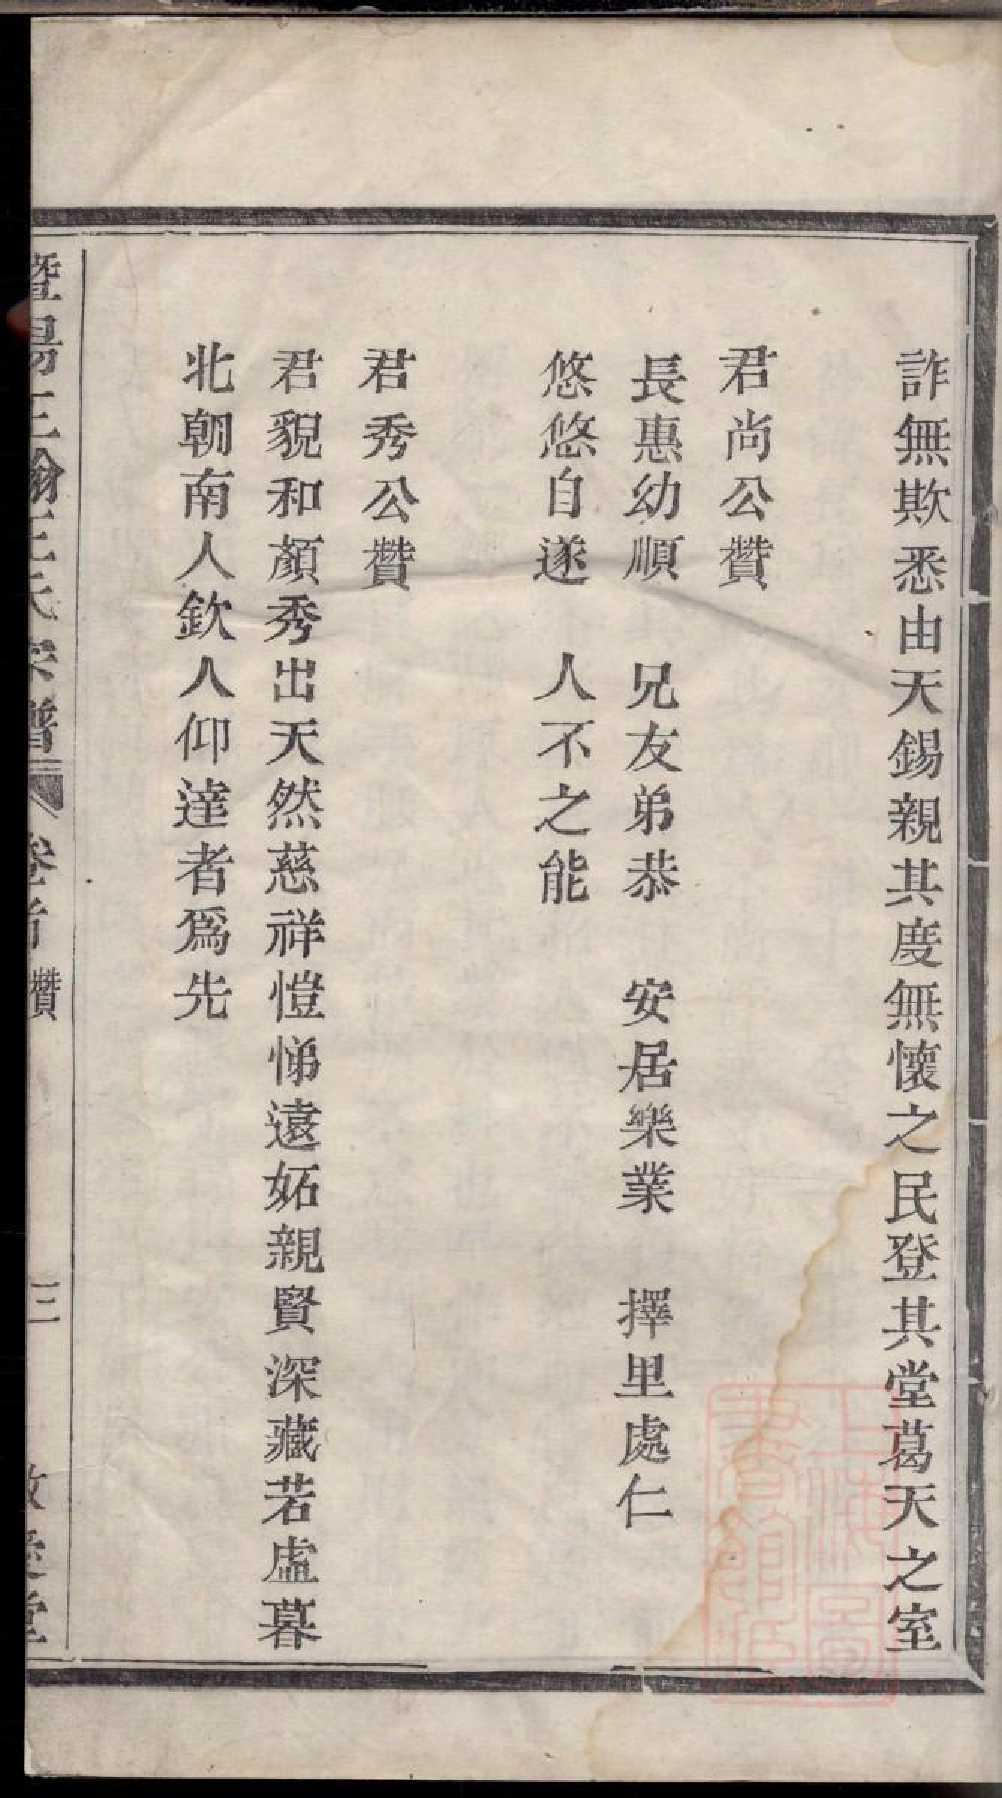 詐無欺悉由天錫親其度無懷之民登其堂葛天之室
君尚公贊
長惠幼順　兄友弟恭　安居樂業　擇里處仁
悠悠自遂　人不之能
君秀公贊
君貌和顏秀出天然慈祥愷悌遠妬親賢深藏若虛暮
北朝南人欽人仰達者爲先
暨陽王氏宗譜　卷首　贊　三　堂
上海圖書館藏